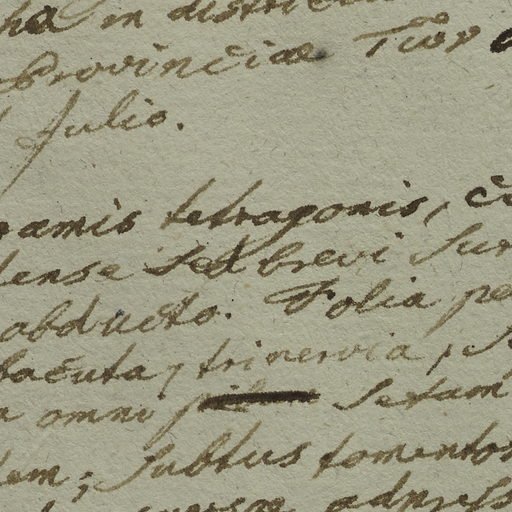 in districtu
Provinciae
Julio.
ramis tetragonis, cu
dense sed brevi sur
abducto. Folia pe
acuta, trinervia, s
omni setam
dem; subtus tomentos
adpress